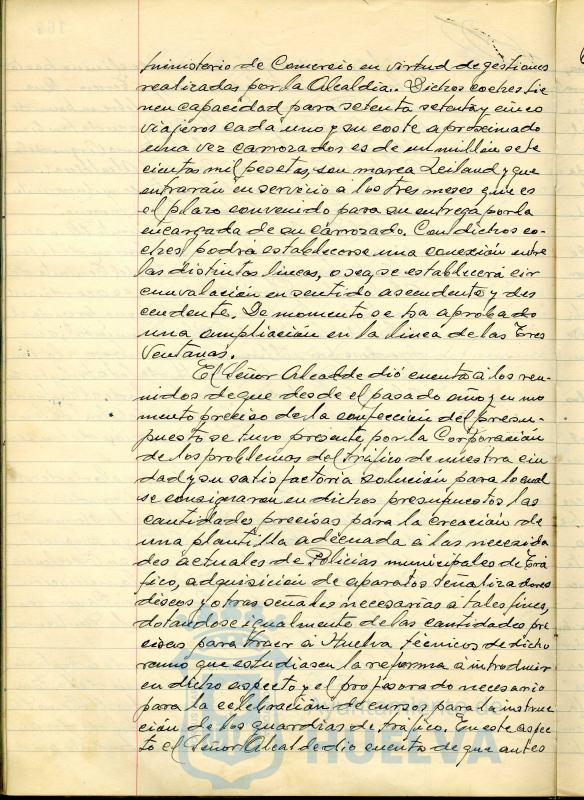 Ministerio de Comercio en virtud de gestiones
realizadas por la Alcaldia. Dichos coches tie
nen capacidad para setenta setenta y cinco
viajeros cada uno y su coste aproximado
una vez carrozados es de un millón sete
cientas mil pesetas, son marca Leiland y que
entrarán en servicio a los tres meses que es
el plazo convenido para su entrega por la
encargada de su carrozado. Con dichos co-
ches, podrá establecerse una conexión entre
las distintas lineas, o sea, se establecerá cir
cunvalación en sentido ascendente y des
cendente. De momento se ha aprobado
una ampliación en la linea de las Tres
Ventanas.
El Señor Alcalde dió cuenta á los reu-
nidos de que desde el pasado año y en mo
mento preciso de la confección del presu-
puesto se tuvo presente por la Corporación
de los problemas del tráfico de nuestra ciu
dad y su satisfactoria solución para lo cual
se consignaron en dichos presupuestos las
cantidades precisas para la creación de
una plantilla adecuada á las necesida
des actuales de Policías municipales de Trá
fico, adquisición de aparatos señalizadores
discos y otras señales necesarias á tales fines,
dotandose igualmente de las cantidades pre
cisas para traer á Huelva técnicos de dicho
ramo que estudiasen la reforma á introducir
en dicho aspecto y el profesorado necesario
para la celebración de cursos para la instruc
ción de los guardias de tráfico. En este aspec
to el Señor Alcalde dio cuenta de que antes
HUELVA